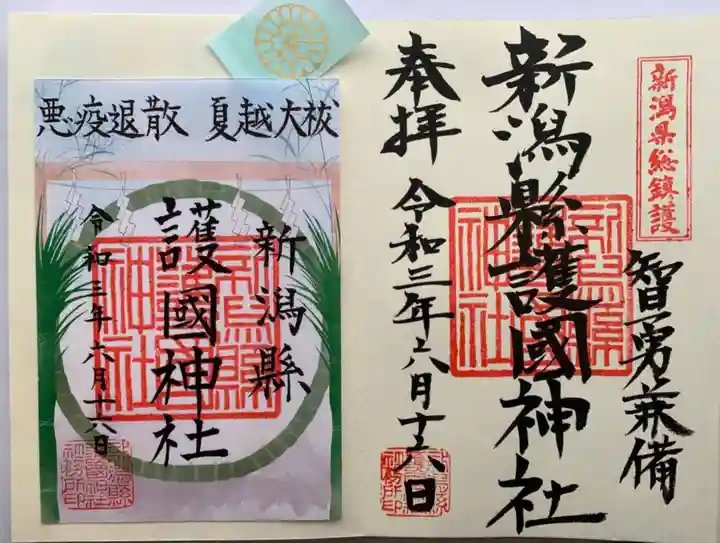 新潟県総鎮護
智勇兼備
新潟縣護國神社
奉拝 令和三年六月十六日
悪疫退散 夏越大祓
新潟縣
護國神社
令和三年六月十六日